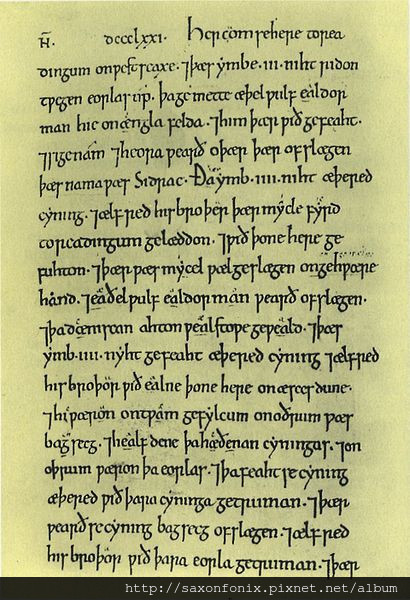 N̄. dccclxxi. Her cóm se here to rea
dingum on ƿestseaxe. ⁊þæs ymbe .iii. niht ridon
tƿegen eorlas úp. þa gemette æþelƿulf ealdor
man hie on ængla felda. ⁊him þær ƿið gefeaht.
⁊sige nám ⁊heora ƿearð oþær þær ofslægen
þæs nama ƿæs Sidrac. Ða ymb .iiii. niht æþered
cyning. ⁊ælfred his broþer þær mycle fyrd
to readingum gelæddon. ⁊ƿið þone here ge
fuhton. ⁊þær ƿæs mycel ƿæl geslægen on gehƿæþere
hánd. ⁊eaðelƿulf ealdorman ƿearð ofslægen.
⁊þa deniscan ahton ƿælstoƿe geƿeald. ⁊þæs
ymb .iiii. nyht gefeaht æþered cyning ⁊ælfred
his broþor ƿið ealne þone here on æscesdune.
⁊hi ƿæron on tƿam gefylcum on oðrum ƿæs
bagsecg. ⁊healfdene þa hæðenan cyningas. ⁊on
oþrum ƿæron þa eorlas. ⁊þa feaht se cyning
æþered ƿið þara cyninga getruman. ⁊þær
ƿearð se cyning bagsecg ofslægen. ⁊ælfred
his broþor ƿið þara eorla getruman. ⁊þær
http://saxonfonix.pixnet.net/album